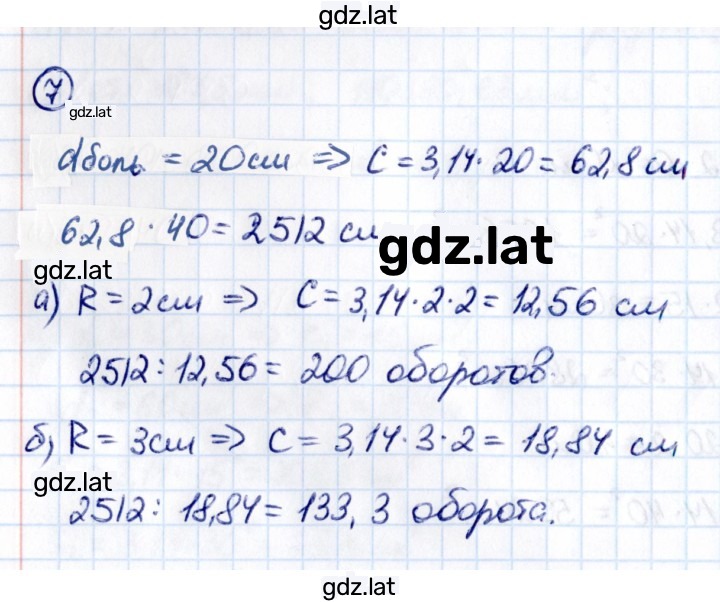 gdz.lat
7
gdz.lat
dболь. = 20см => C = 3,14 · 20 = 62,8 см
62,8 · 40 = 2512 см
gdz.lat
gdz.lat
а) R = 2см => C = 3,14 · 2 · 2 = 12,56 см
2512 : 12,56 = 200 оборотов.
б) R = 3см => C = 3,14 · 3 · 2 = 18,84 см
gdz.lat
2512 : 18,84 = 133,3 оборота.
gdz.lat